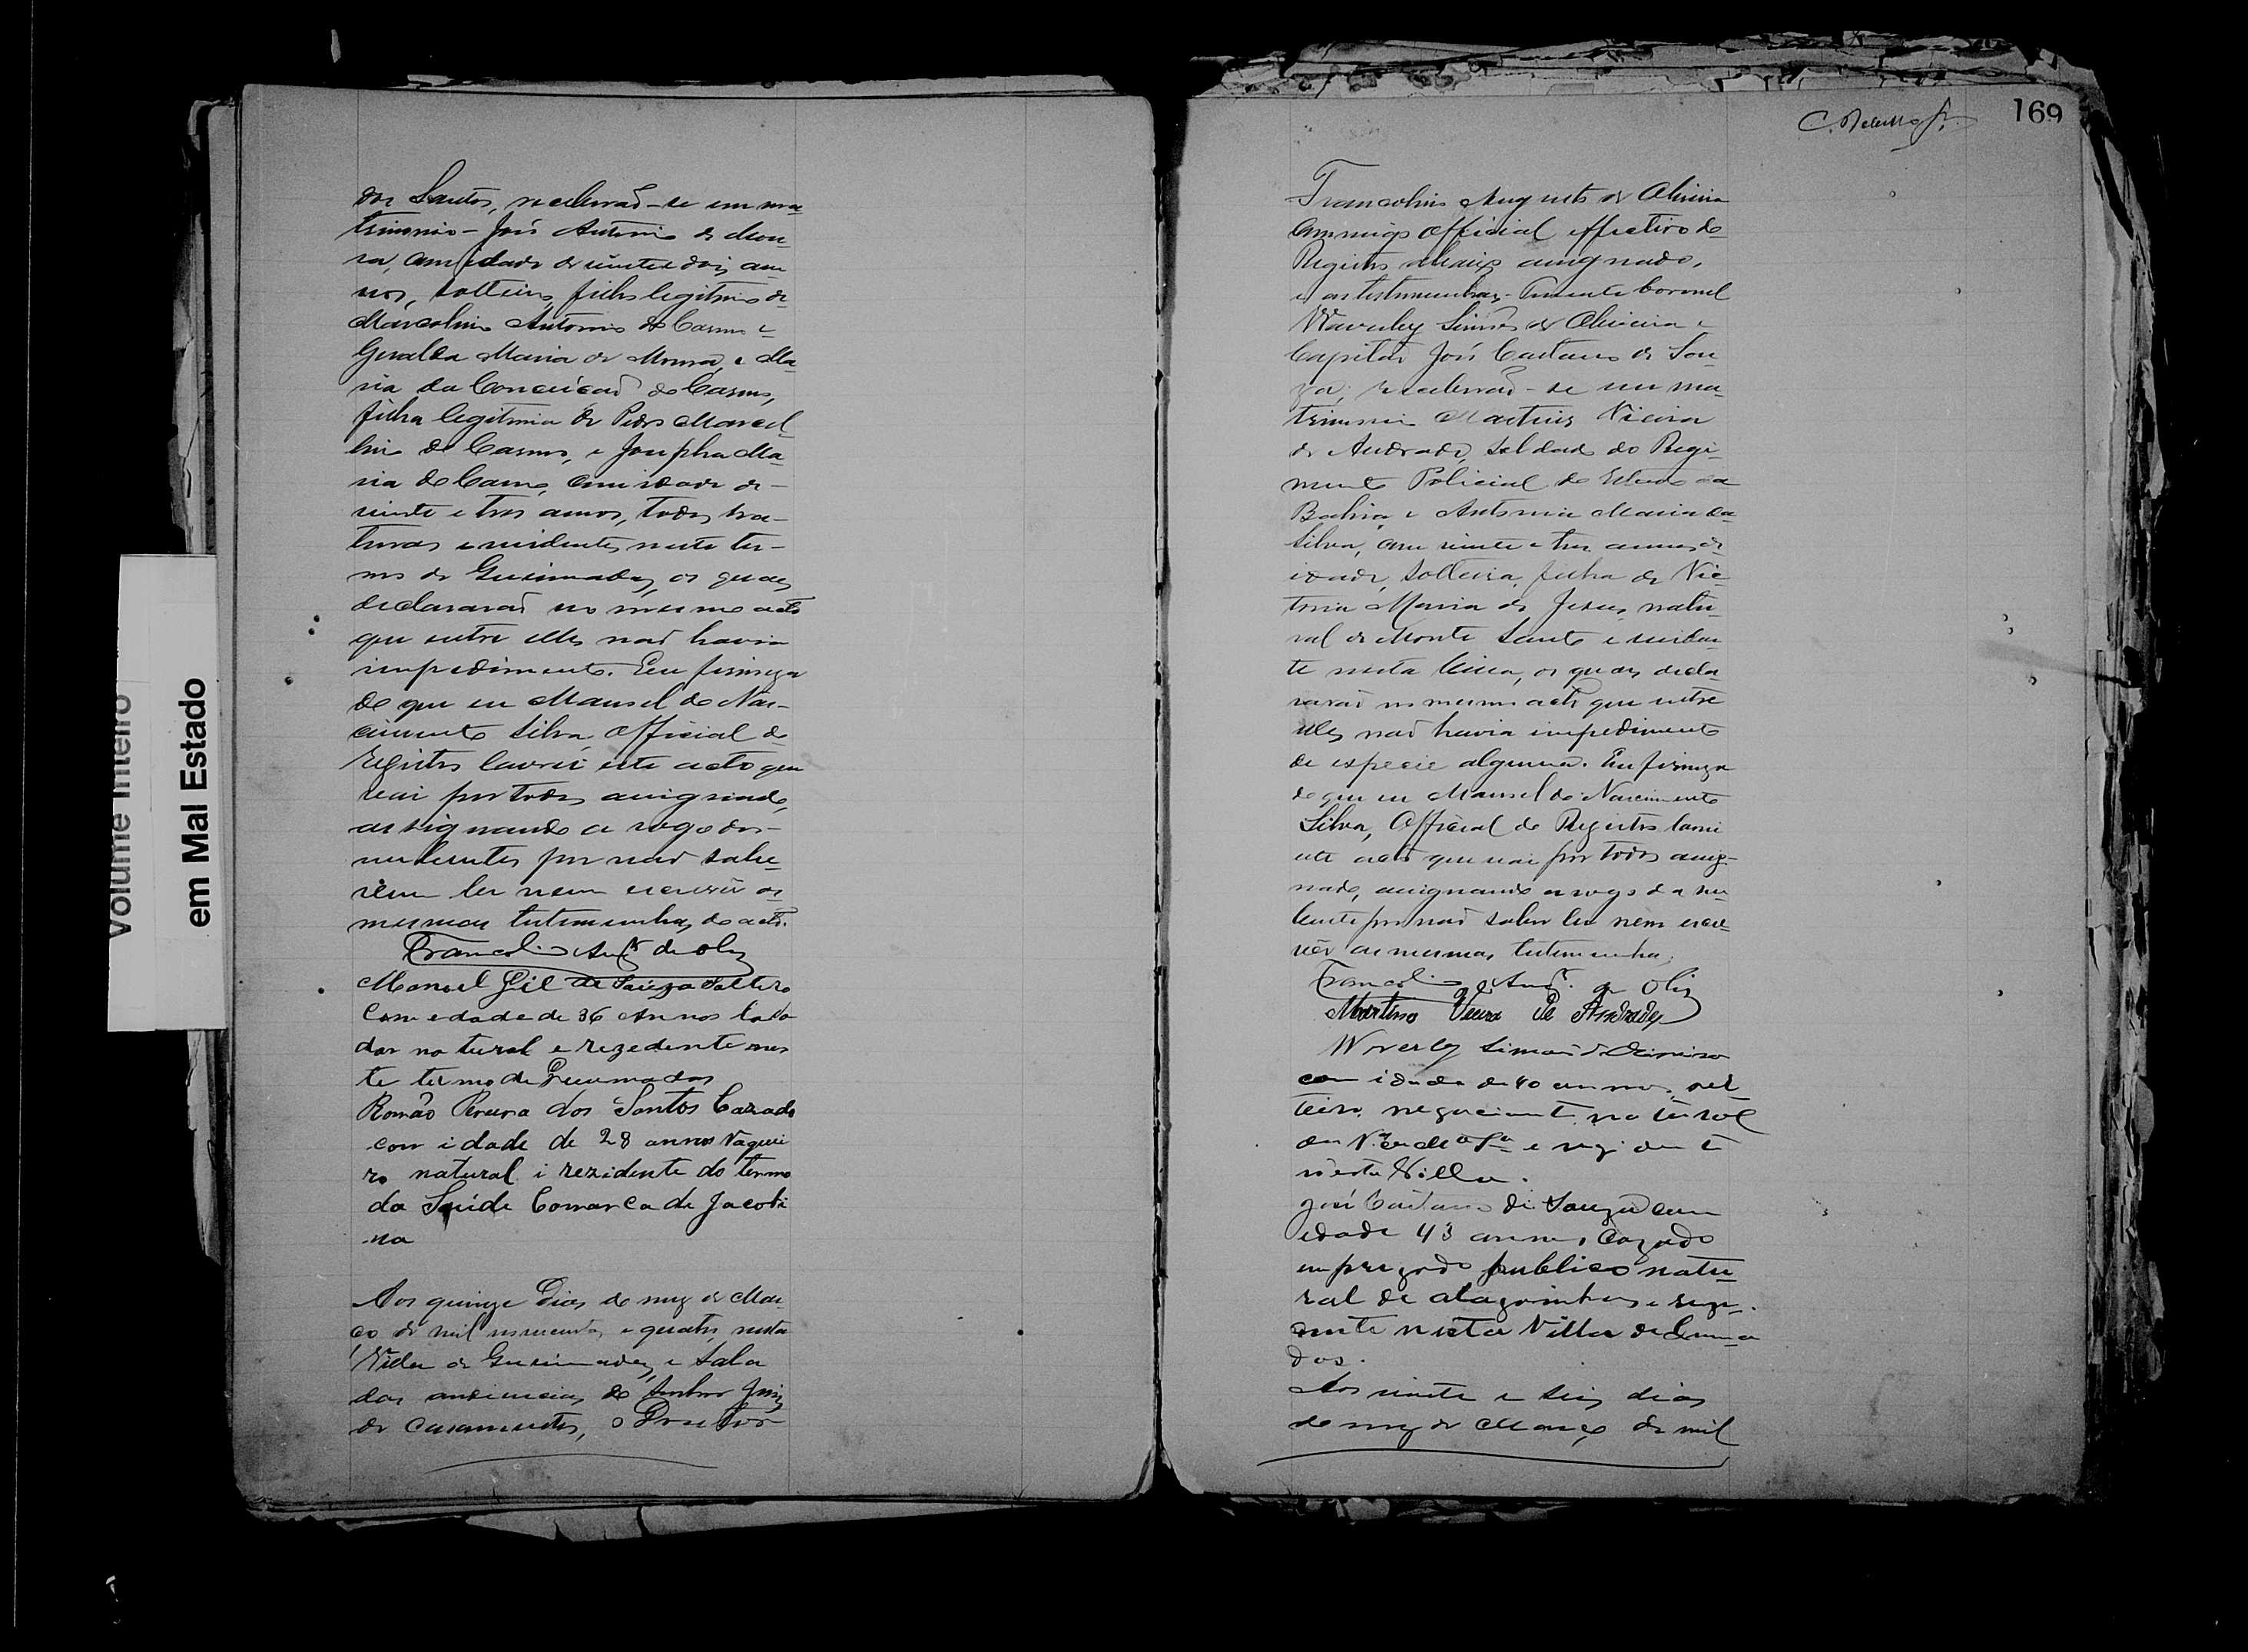 Volume Inteiro
em Mal Estado
dos Santos, receberaõ-se em ma-
trimonio - José Antonio de Mou-
ra, com idade de vinte e dois an-
nos, solteiro, filho legitimo de
Marcolino Antonio do Carmo e
Geralda Maria de Moura, e Ma-
ria da Conceicaõ do Carmo,
filha legitima de Pedro Marcel-
lino do Carmo, e Josepha Ma-
ria do Carmo, com idade de
vinte e tres annos, todos na-
turaes e residentes neste ter-
mo de Queimadas, os quaes
declararaõ no mesmo acto
que entre elles naõ havia
impedimento. Em firmeza
do que eu Manoel do Nas-
cimento Silva, Official do
Registro lavrei este acto que
vai por todos assignado,
assignando a rogo dos
nubentes por naõ sabe-
rem ler nem escrever as
mesmas testemunhas do acto.
Francolino Augto de Olira
Manoel Gil de Souza Solteiro
Com edade de 36 Annos lavra
dor natural e rezedente nes
te termo de Queimadas
Romão Pereira dos Santos Cazado
com idade de 28 annos Vaquei
ro natural i rezidente do termo
da Saúde Comarca de Jacobi
na
Aos quinze dias do mez de Mar-
ço de mil novecentos e quatro, nesta
Villa de Queimadas, e sala
das audiencias do Senhor Juiz
de Casamentos, o Doutor
169
Francolino Augusto de Oliveira
commigo Official effectivo do
Registro abaixo assignado,
e as testemunhas - Tenente Coronel
Waverley Simões de Oliveira e
Capitaõ José Caetano de Sou-
za; receberaõ-se em ma-
trimonio Martins Vieira
de Andrade, soldado do Regi-
mento Policial do Estado da
Bahia, e Antonia Maria da
Silva, com vinte e tres annos de
idade, solteira, filha de Vic-
toria Maria de Jesus, natu-
ral de Monte Santo e residen-
te nesta Villa, os quaes decla-
raraõ no mesmo acto que entre
elles naõ havia impedimento
de especie alguma. Em firmeza
do que eu Manoel do Nascimento
Silva, Official do Registro lavrei
este acto que vai por todos assig-
nado, assignando a rogo da nu-
bente por naõ saber ler nem escre-
ver as mesmas testemunhas.
Francolino Augto de Olira
Martins Vieira de Andrade
Waverley Simões de Oliveira
com idade de 40 annos, sol-
teiro, negociante natural
da e rezidente
nesta Villa.
José Caetano de Souza com
edade 43 annos, Cazado
empregado publico natu-
ral de Alagoinhas e rezi-
dente nesta Villa de Queima
das.
Aos vinte e seis dias
do mez de Março de mil